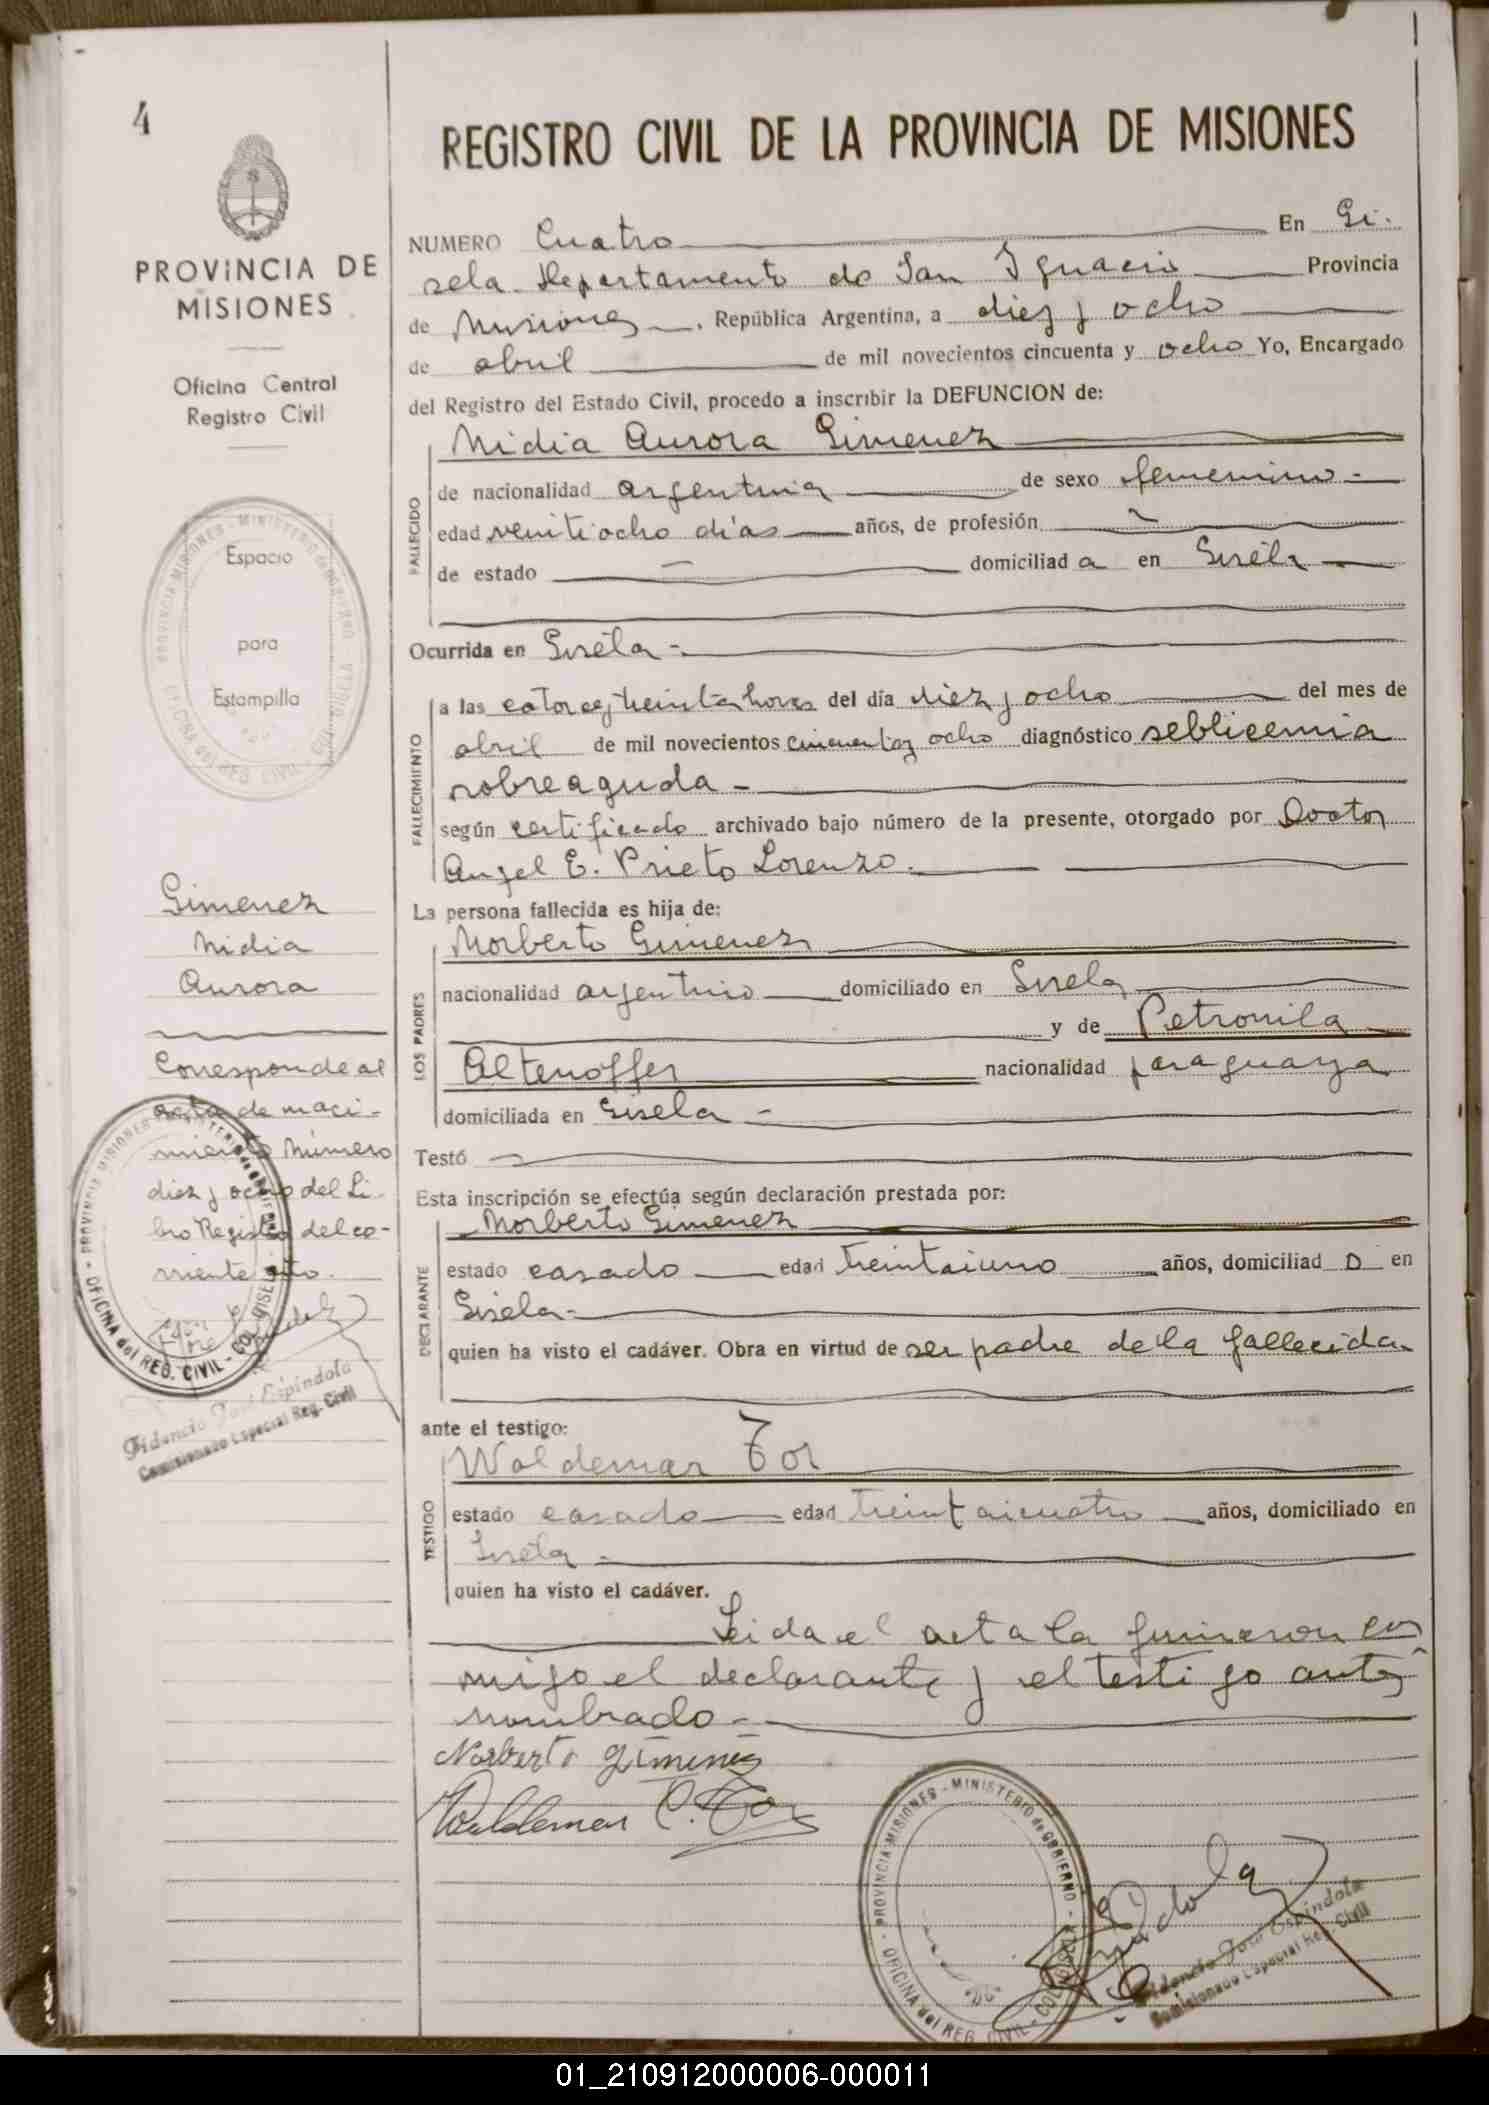 4
REGISTRO CIVIL DE LA PROVINCIA DE MISIONES
PROVINCIA DE
MISIONES
Oficina Central
Registro Civil
Espacio
para
Estampilla
Gimenez
Nidia
Aurora
Corresponde al
acta de naci-
miento Número
diez y ocho del Li-
bro Registro del co-
rriente año.
Fidencio José Espíndola
Comisionado Especial Reg. Civil
NUMERO Cuatro En Gi-
sela Departamento de San Ignacio Provincia
de Misiones, República Argentina, a diez y ocho
de abril de mil novecientos cincuenta y ocho Yo, Encargado
del Registro del Estado Civil, procedo a inscribir la DEFUNCION de:
Nidia Aurora Gimenez
FALLECIDO
de nacionalidad argentina de sexo femenino-
edad veintiocho días años, de profesión
de estado domiciliad a en Gisela
Ocurrida en Gisela-
FALLECIMIENTO
a las catorce y treinta horas del día diez y ocho del mes de
abril de mil novecientos cincuenta y ocho diagnóstico seblicemia
sobreaguda-
según certificado archivado bajo número de la presente, otorgado por Doctor
Angel E. Prieto Lorenzo.
La persona fallecida es hija de:
LOS PADRES
Norberto Gimenez
nacionalidad argentino domiciliado en Gisela
y de Petronila
Altenoffer nacionalidad paraguaya
domiciliada en Gisela-
Testó
Esta inscripción se efectúa según declaración prestada por:
DECLARANTE
Norberto Gimenez
estado casado edad treintaiuno años, domiciliad o en
Gisela-
quien ha visto el cadáver. Obra en virtud de ser padre de la fallecida-
ante el testigo:
TESTIGO
Waldemar Tor
estado casado edad treintaicuatro años, domiciliado en
Gisela-
quien ha visto el cadáver.
Leida el acta la firmaron con
migo el declarante y el testigo antes
nombrado-
Norberto Gimenez
Waldemar C. Tor
PROVINCIA MISIONES - MINISTERIO de GOBIERNO
OFICINA del REG. CIVIL - COL. GISELA
Fidencio José Espíndola
Comisionado Especial Reg. Civil
01_210912000006-000011